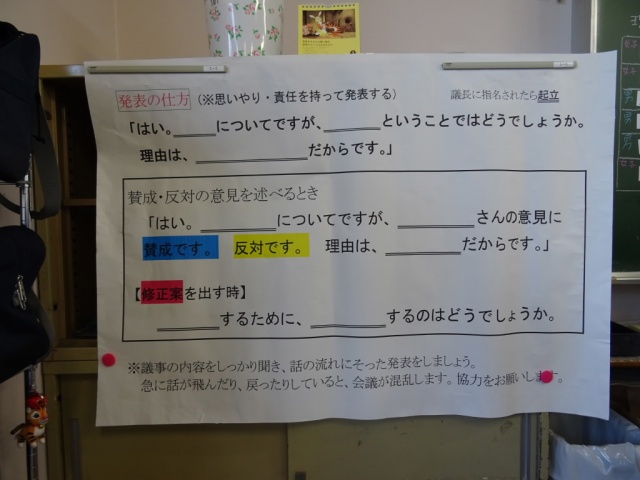 発表の仕方 (※思いやり・責任を持って発表する) 議長に指名されたら起立
「はい。_____についてですが、_______ということではどうでしょうか。
理由は、_____________だからです。」
賛成・反対の意見を述べるとき
「はい。_________についてですが、_________さんの意見に
賛成です。 反対です。 理由は、_________だからです。」
【修正案を出す時】
_______するために、_________するのはどうでしょうか。
※議事の内容をしっかり聞き、話の流れにそった発表をしましょう。
急に話が飛んだり、戻ったりしていると、会議が混乱します。協力をお願いします。